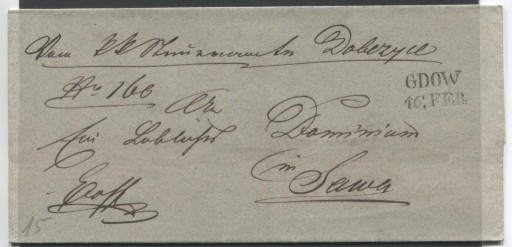 Vom KK Steueramte Dobczyce
GDOW
16. FEB.
No 160
An
Ein Löbliches Dominium
in
Sawa
15